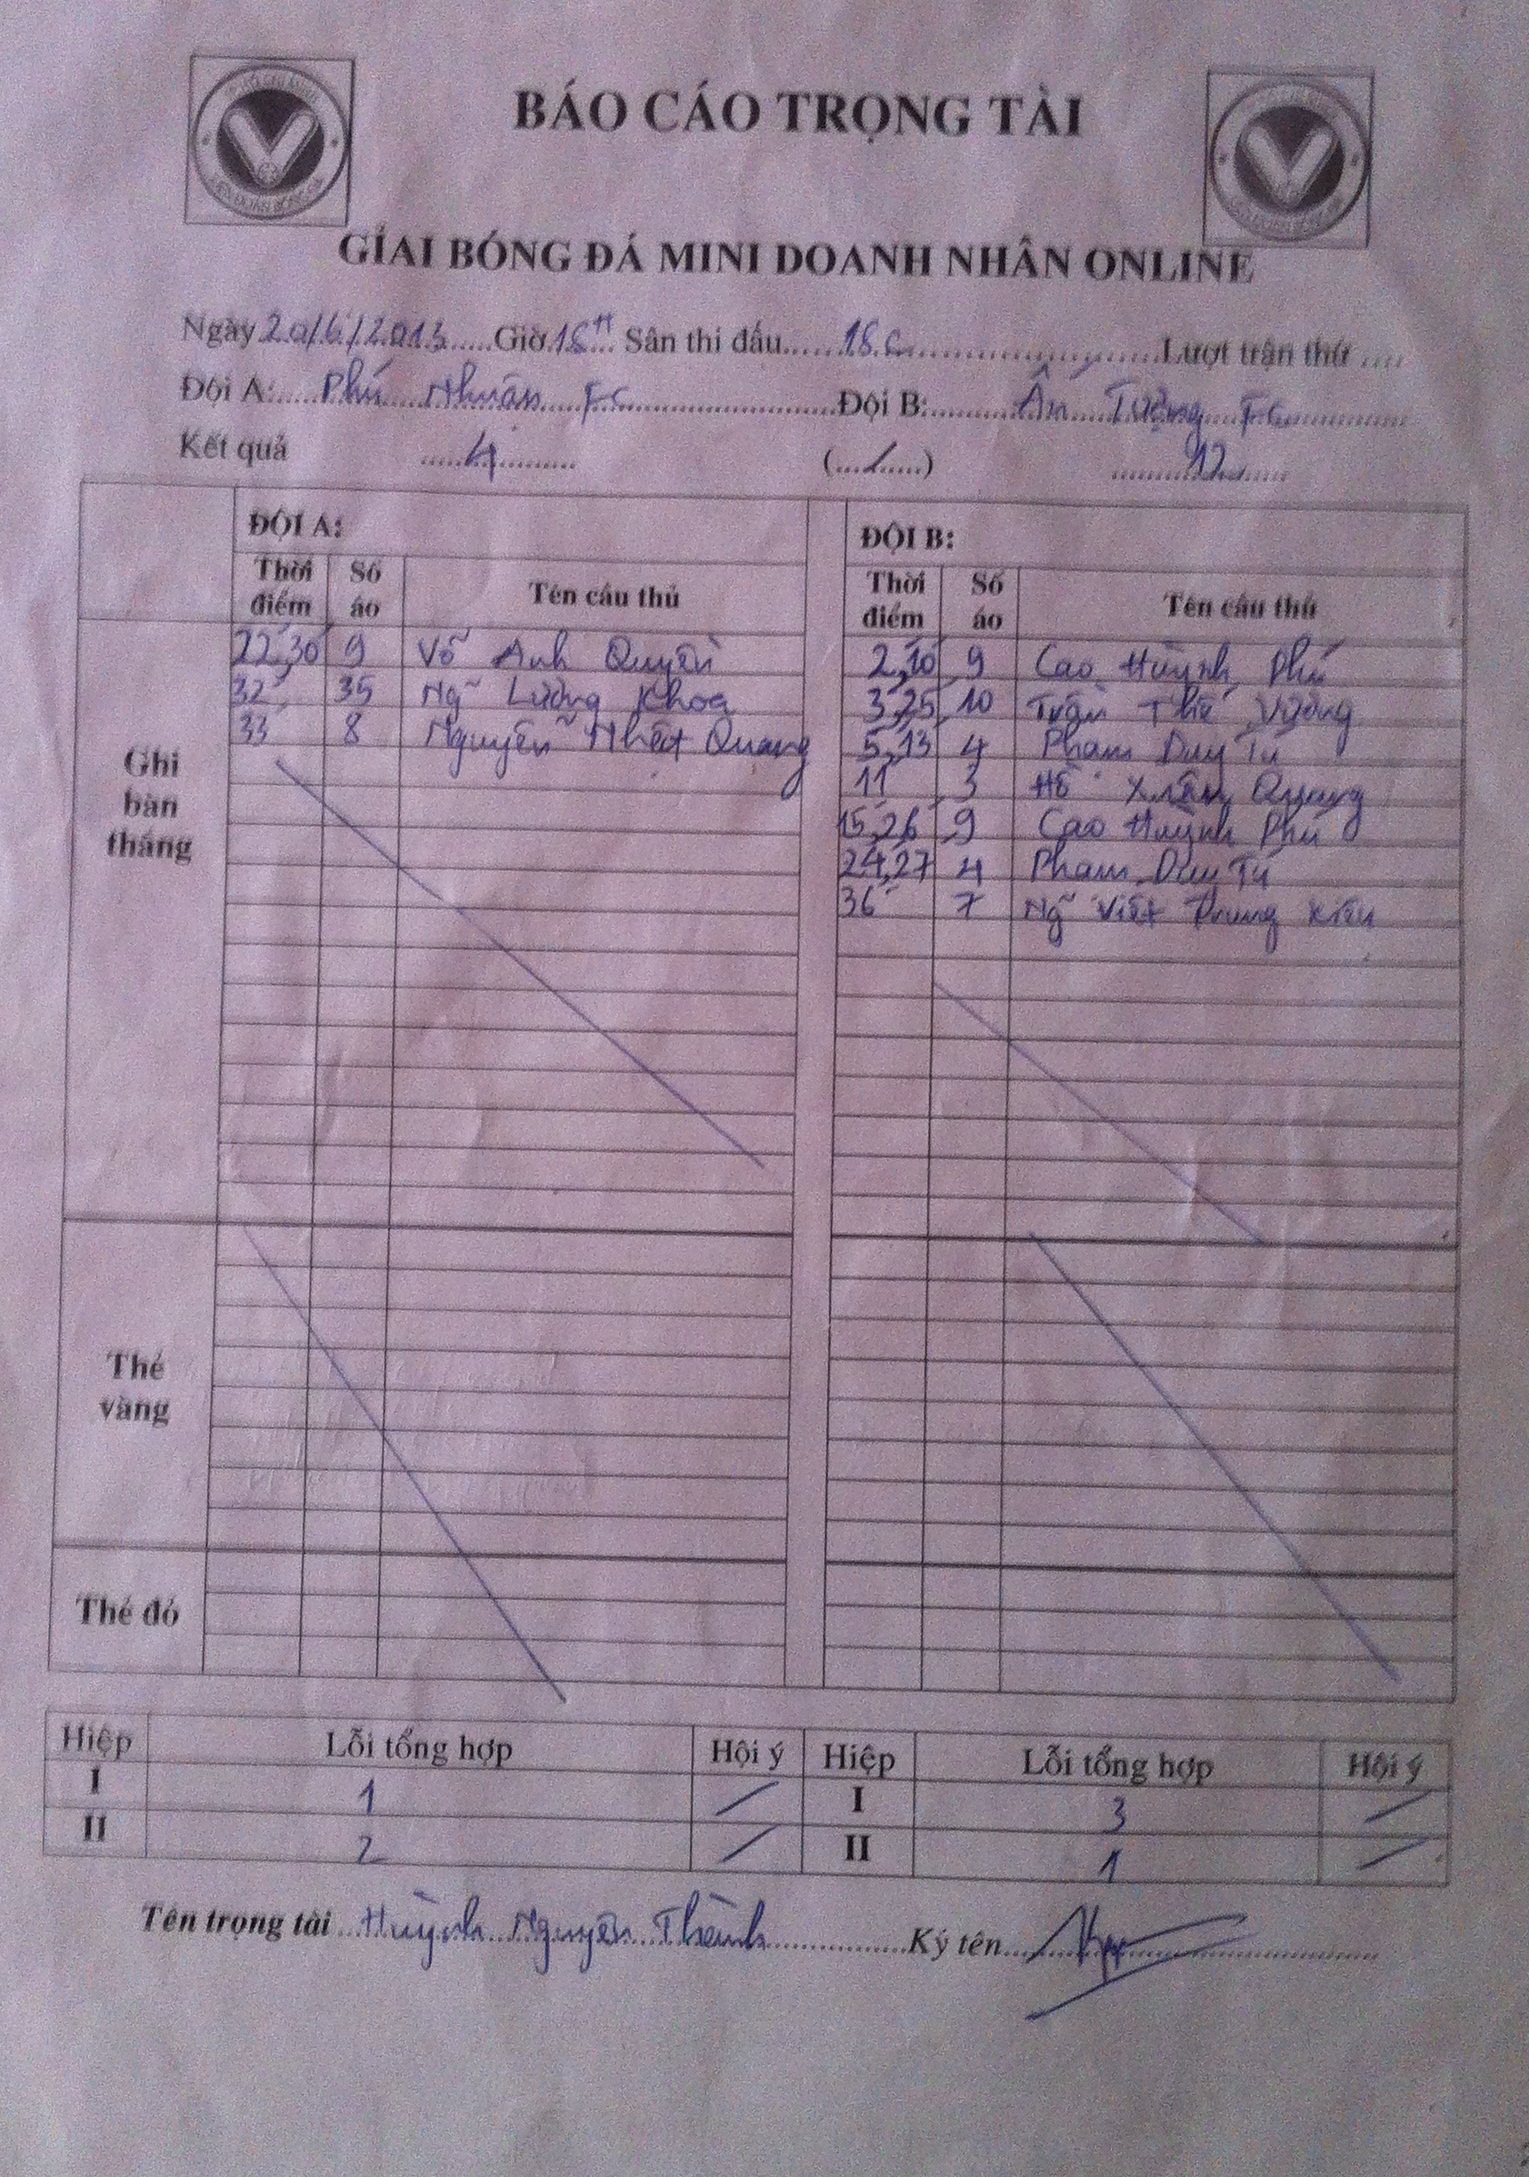 BÁO CÁO TRỌNG TÀI
GIẢI BÓNG ĐÁ MINI DOANH NHÂN ONLINE
Ngày 20/6/2013 Giờ 18H Sân thi đấu 18c Lượt trận thứ ....
Đội A: Phú Nhuận FC Đội B: Ấn Tượng FC
Kết quả 4 (.../...) 12
ĐỘI A: ĐỘI B:
Thời điểm Số áo Tên cầu thủ Thời điểm Số áo Tên cầu thủ
Ghi bàn thắng
22,30 9 Võ Anh Quyền 2,10 9 Cao Huỳnh Phú
32 35 Ng Lương Khoa 3,25 10 Trần Thế Vương
33 8 Nguyễn Nhật Quang 5,13 4 Phạm Duy Tú
11 3 Hồ Xuân Quang
15,26 9 Cao Huỳnh Phú
24,27 4 Phạm Duy Tú
36 7 Ng Viết Trung Kiên
Thẻ vàng
Thẻ đỏ
Hiệp Lỗi tổng hợp Hội ý Hiệp Lỗi tổng hợp Hội ý
I 1 / I 3 /
II 2 / II 1 /
Tên trọng tài Huỳnh Nguyên Thành Ký tên